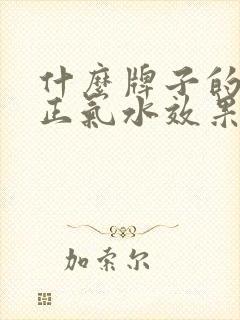 什麼牌子的
正氣水效果
加索尔